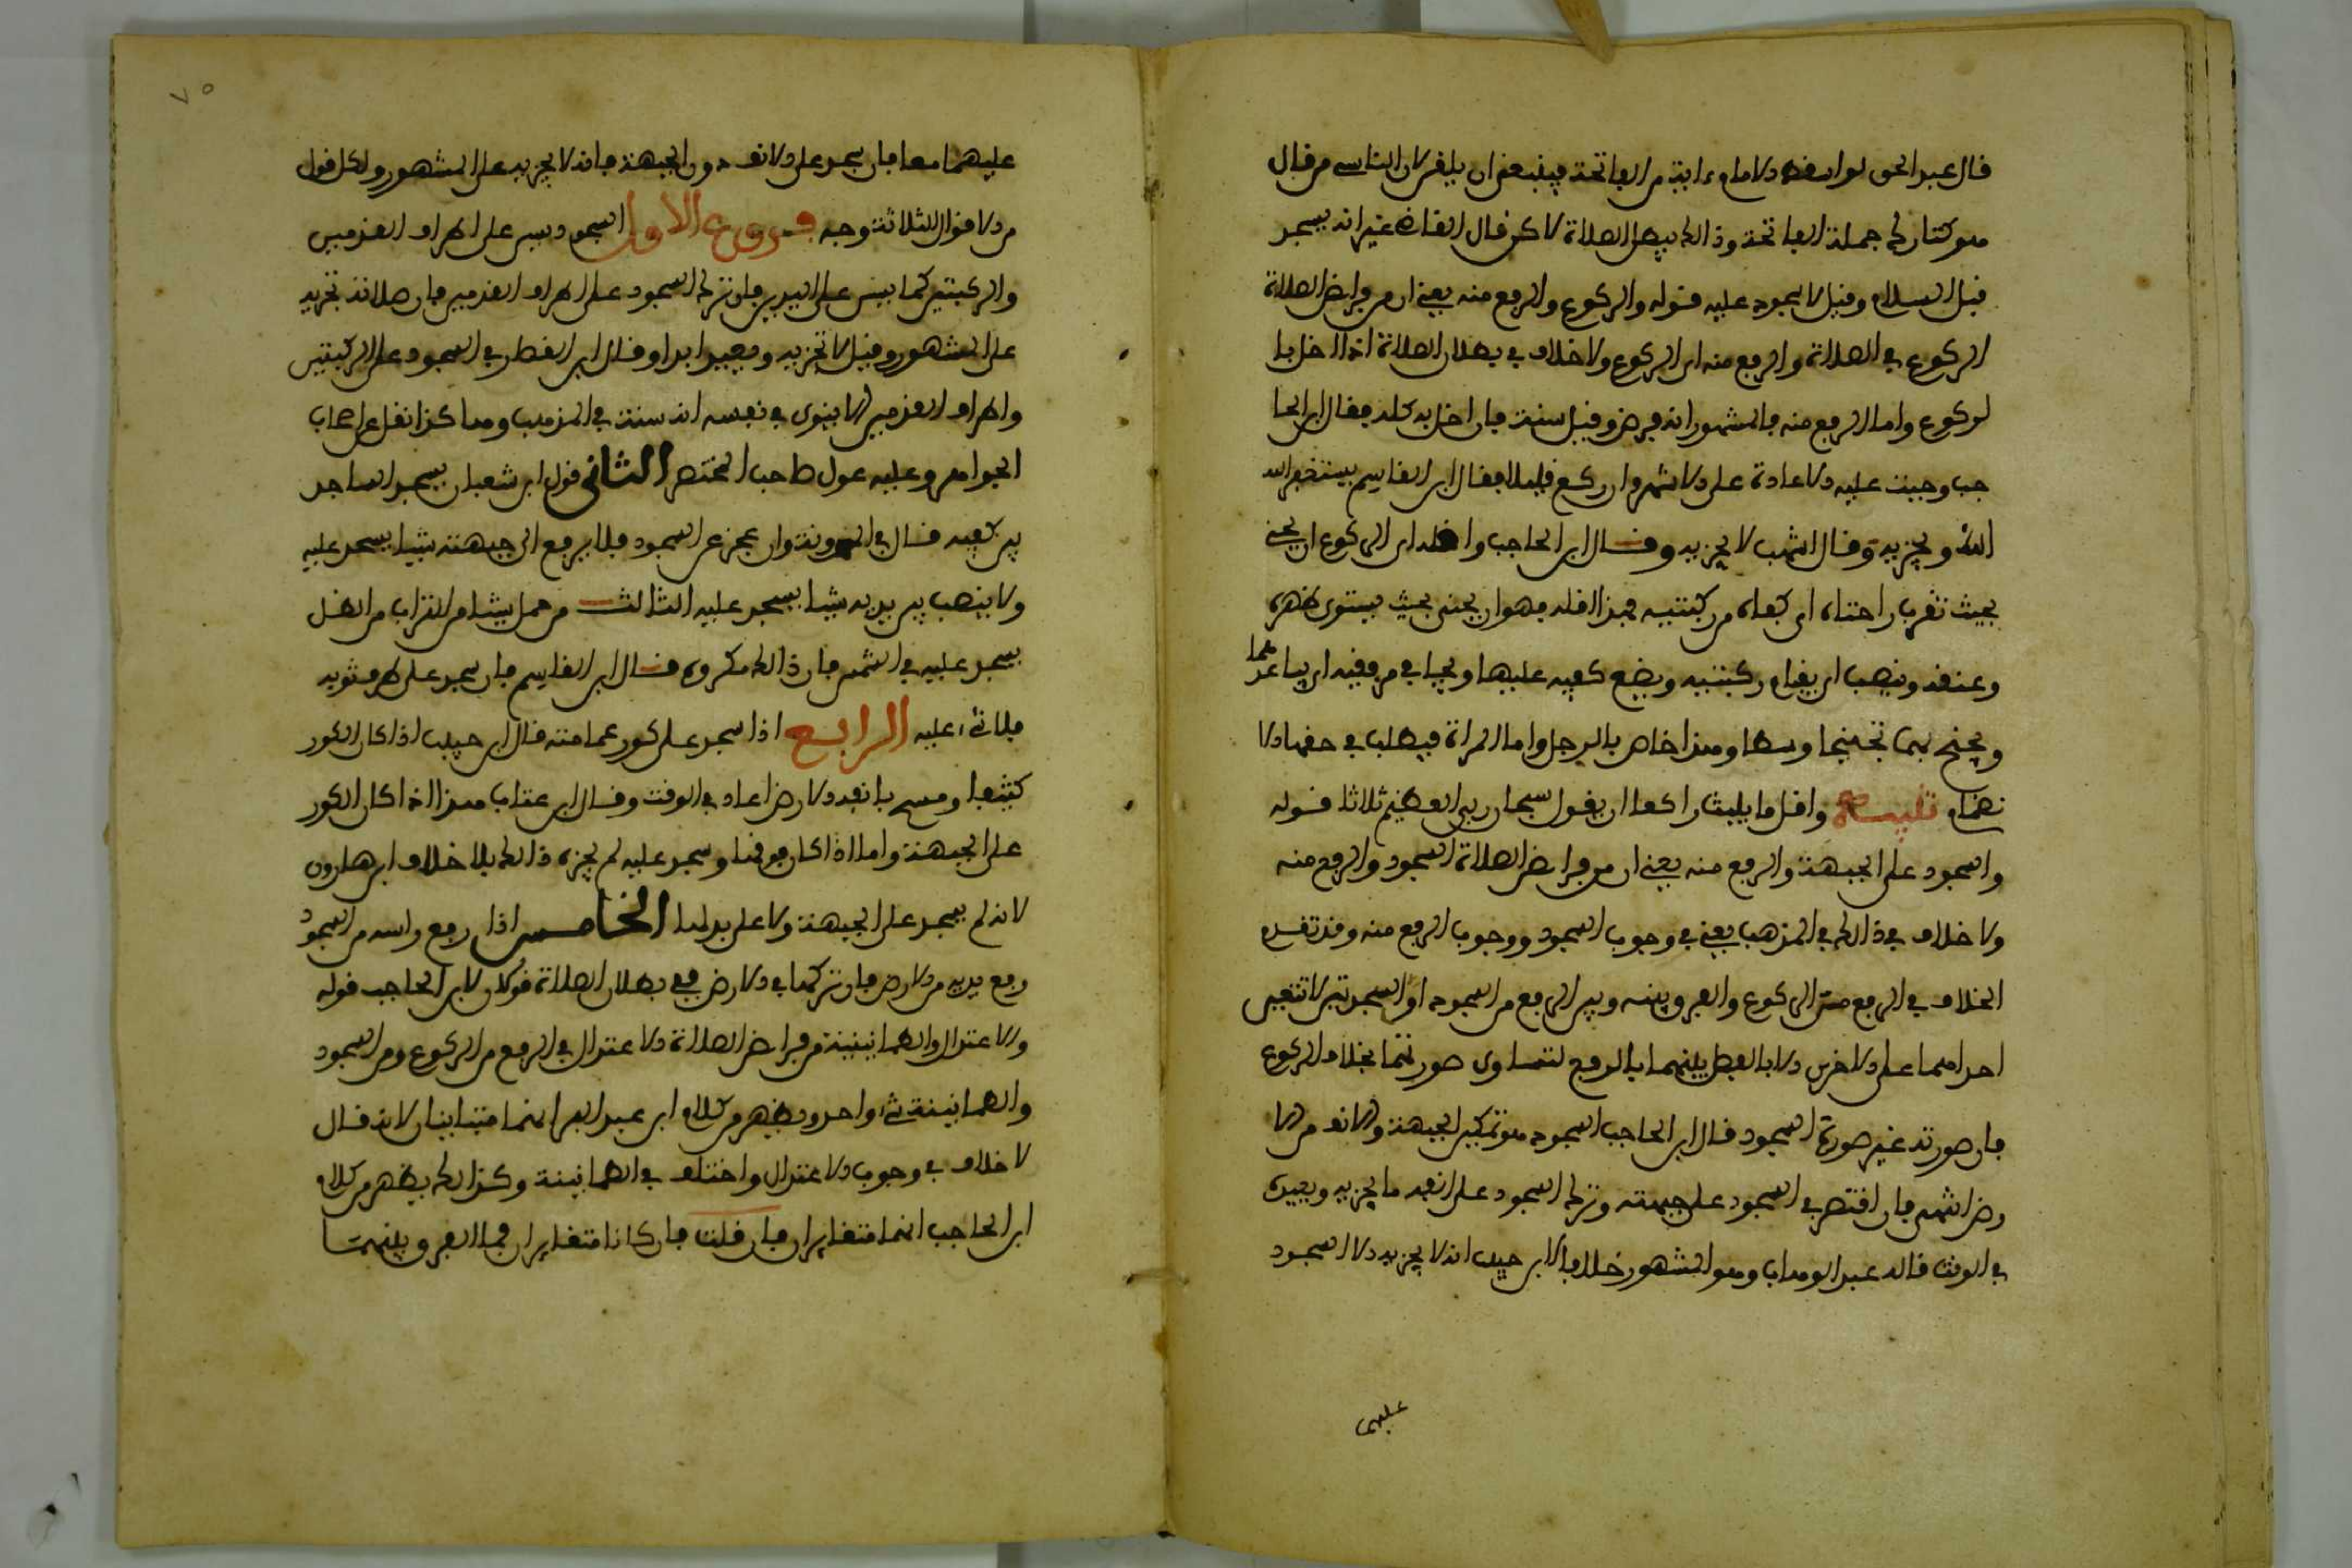 قال عبد الحق لو اسقط الامام ءاية من الفاتحة فينبغي ان يلقن لان الناسي من قال
هو كتارك جملة الفاتحة وذالك يبطل الصلاة لاكن قال القاضي غير انه يسجد
قبل السلام وقيل لا سجود عليه قوله والركوع والرفع منه يعني ان من فرايض الصلاة
الركوع في الصلاة والرفع منه اي الركوع ولا خلاف في بطلان الصلاة اذا اخل با
لركوع واما الرفع منه فالمشهور انه فرض وقيل سنة فان اخل به كله فقال ابن الحا
جب وجبت عليه الاعادة على الاشهر وان ركع فقال ابن القاسم يستغفر الله
الله ويجزيه وقال اشهب لا يجزيه وقال ابن الحاجب واقله اي الركوع ان يحني
بحيث تقرب راحتاه اي كفاه من ركبتيه فهذا اقله فهو ان يحني بحيث يستوي ظهره
وعنقه وينصب اي يقيم ركبتيه ويضع كفيه عليها ويجافي مرفقيه اي يباعدهما
ويجنح بهما تجنيحا وسطا وهذا خاص بالرجل واما المراة فيطلب في حقها الا
نضمام تنبيه واقل ما يلبث راكعا ان يقول سبحان ربي العظيم ثلاثا قوله
والسجود على الجبهة والرفع منه يعني ان من فرايض الصلاة السجود والرفع منه
ولا خلاف في ذالك في المذهب يعني في وجوب السجود ووجوب الرفع منه وقد تقدم
الخلاف في الرفع من الركوع والفرق بينه وبين الرفع من السجود ان السجدتين لا تتعين
احداهما على الاخرى الا بالفصل بينهما بالرفع لتساوي صورتهما بخلاف الركوع
فان صورته غير صورة السجود قال ابن الحاجب السجود هو تمكين الجبهة والانف من الا
رض الشهي فان اقتصر في السجود على جبهته وترك السجود على انفه ما يجزيه ويعيده
في الوقت قاله عبد الوهاب وهو المشهور خلافا لابن حبيب انه لا يجزيه الا السجود
عليهما
٧٥
عليهما معا فان سجد على الانف دون الجبهة فانه لا يجزيه على المشهور ولكل قول
من الاقوال الثلاثة وجه فروع الاول السجود يسن على اطراف القدمين
والركبتين كما يسن على اليدين فلو ترك السجود على اطراف القدمين فان صلاته تجزيه
على المشهور وقيل لا تجزيه ويعيد ابدا وقال ابن القطان في السجود على الركبتين
واطراف القدمين انما يقوى في نفسه انه سنة في المذهب وهاكذا نقل عن اصحاب
الجوامع وعليه عول صاحب المختصر الثاني قول ابن شعبان يسجد الساجد
بين كفيه قال في المدونة وان عجز عن السجود فلا يرفع الى جبهته شيا يسجد عليه
ولا ينصب بين يديه شيا يسجد عليه الثالث من حمل شيا من التراب من الظل
يسجد عليه في الشمس فان ذالك مكروه قال ابن القاسم فان سجد على طرف ثوبه
فلا شيء عليه الرابع اذا سجد على كور عمامته قال ابن حبيب اذا كان الكور
كثيفا ومسح بانفه الارض اعاد في الوقت وقال ابن عتاب هذا اذا كان الكور
على الجبهة واما اذا كان فوقها وسجد عليه لم يجزه ذالك بلا خلاف ابن هارون
لانه لم يسجد على الجبهة ولا على بدلها الخامس اذا رفع راسه من السجود
رفع يديه من الارض فان تركهما في الارض ففي بطلان الصلاة قولان لابن الحاجب قوله
والاعتدال والطمانينة من فرايض الصلاة الاعتدال في الرفع من الركوع ومن السجود
والطمانينة شيء واحد ويظهر من كلام ابن عبد البر انهما متباينان لانه قال
لا خلاف في وجوب الاعتدال واختلف في الطمانينة وكذالك يظهر من كلام
ابن الحاجب انهما متغايران فان قلت فان كانا متغايران فما الفرق بينهما